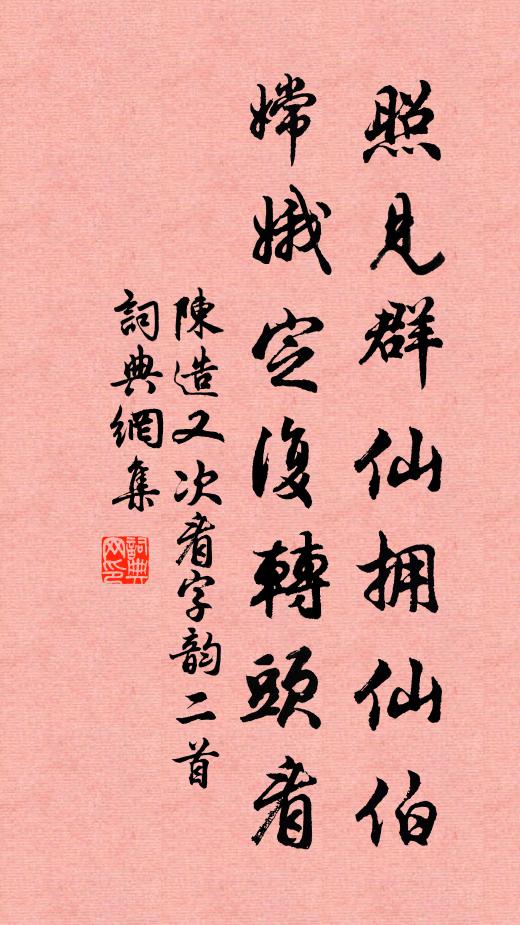 照見群仙拥仙伯
嫦娥定復轉頭看
陳造又次看字韵二首
詞典網集
詞典网印